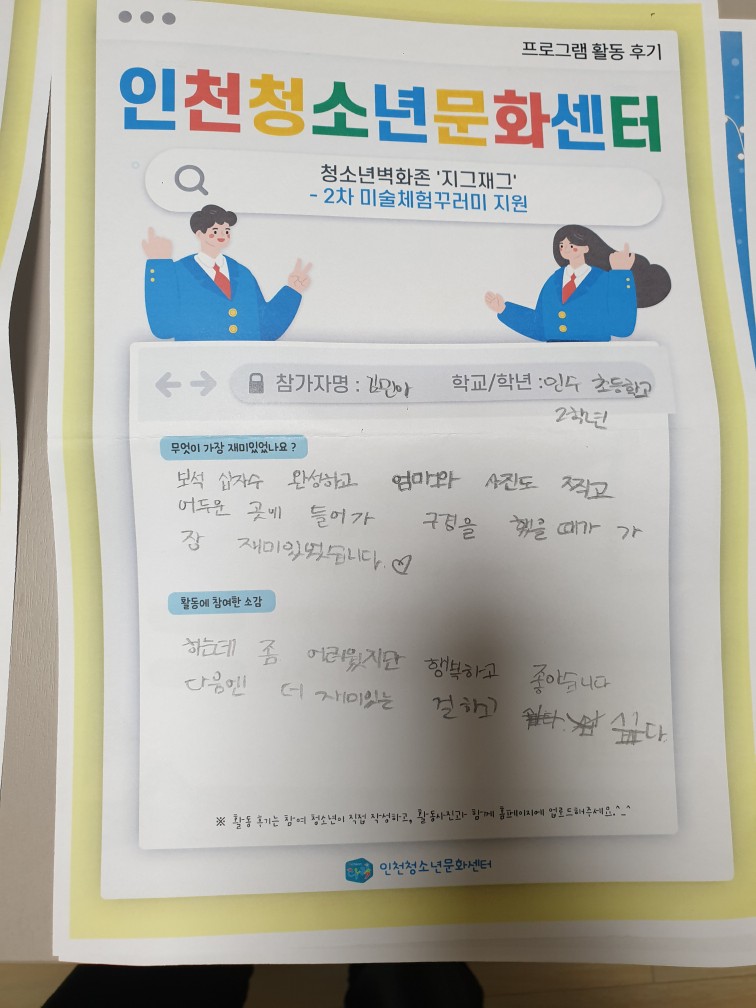 프로그램 활동 후기
인천청소년문화센터
청소년벽화존 '지그재그'
- 2차 미술체험꾸러미 지원
참가자명 : 김민아 학교/학년 : 인수 초등학교
2학년
무엇이 가장 재미있었나요 ?
보석 십자수 완성하고 엄마와 사진도 찍고
어두운 곳에 들어가 구경을 했을 때가 가
장 재미있었습니다. ♡
활동에 참여한 소감
하는데 좀 어려웠지만 행복하고 좋아습니다
다음엔 더 재미있는 걸 하고 싶다.
※ 활동 후기는 참여 청소년이 직접 작성하고, 활동사진과 함께 홈페이지에 업로드해주세요.^_^
인천청소년문화센터